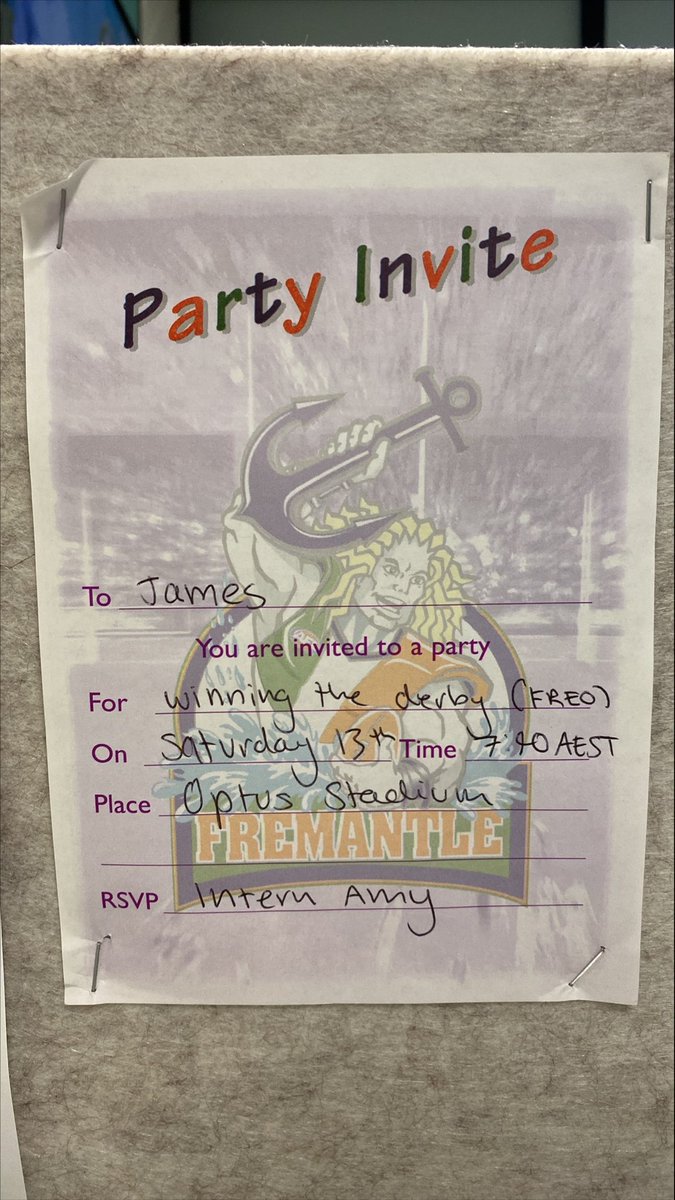 Party Invite
To James
You are invited to a party
For winning the derby (FREO)
On Saturday 13th Time 7:40 AEST
Place Optus Stadium
FREMANTLE
RSVP Intern Amy